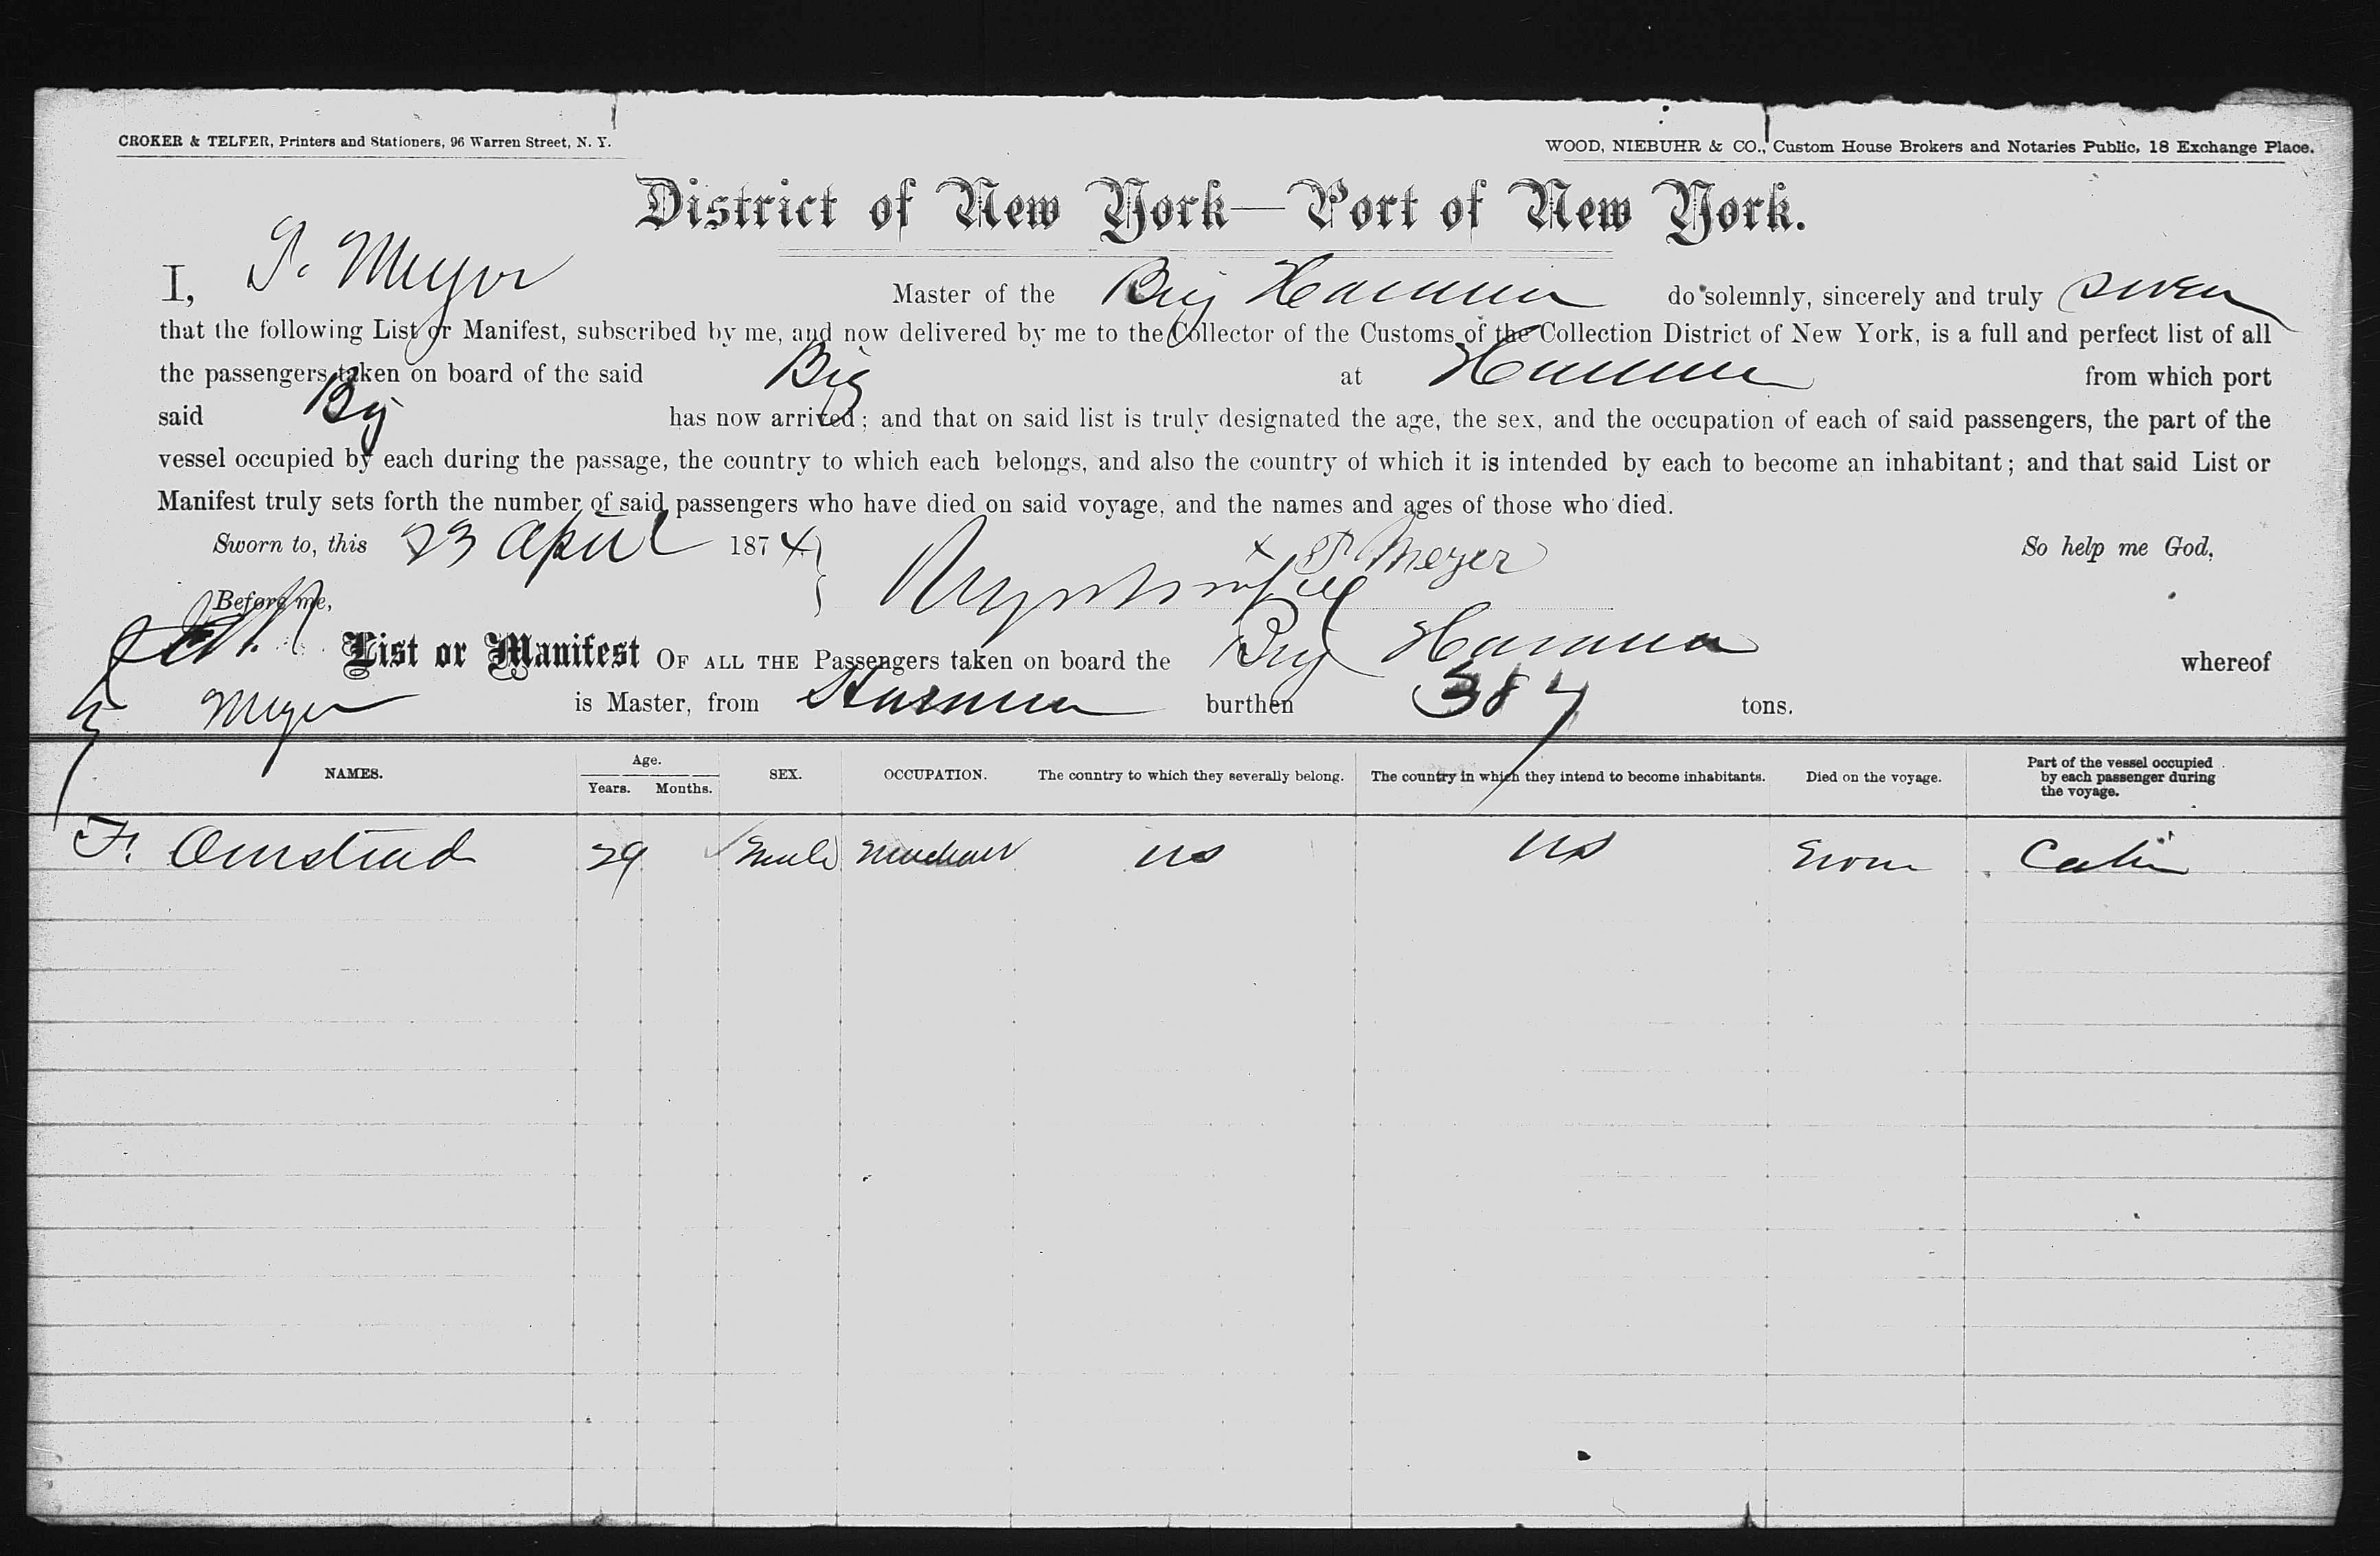 CROKER & TELFER, Printers and Stationers, 96 Warren Street, N. Y.
WOOD, NIEBUHR & CO., Custom House Brokers and Notaries Public, 18 Exchange Place.
District of New York—Port of New York.
I, Meyer Master of the Brig Havana do solemnly, sincerely and truly swear
that the following List or Manifest, subscribed by me, and now delivered by me to the Collector of the Customs of the Collection District of New York, is a full and perfect list of all
the passengers taken on board of the said Brig at Havana from which port
said Brig has now arrived; and that on said list is truly designated the age, the sex, and the occupation of each of said passengers, the part of the
vessel occupied by each during the passage, the country to which each belongs, and also the country of which it is intended by each to become an inhabitant; and that said List or
Manifest truly sets forth the number of said passengers who have died on said voyage, and the names and ages of those who died.
Sworn to, this 23 April 1874 x Meyer So help me God,
Before me,
List or Manifest OF ALL THE Passengers taken on board the Brig Havana whereof
Meyer is Master, from Havana burthen 387 tons.
NAMES. Age. Years. Months. SEX. OCCUPATION. The country to which they severally belong. The country in which they intend to become inhabitants. Died on the voyage. Part of the vessel occupied by each passenger during the voyage.
F. 29 Male Merchant US US None Cabin